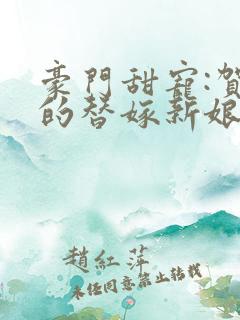 豪門甜寵:賀
的替嫁新娘
趙紅萍
未經同意禁止轉載